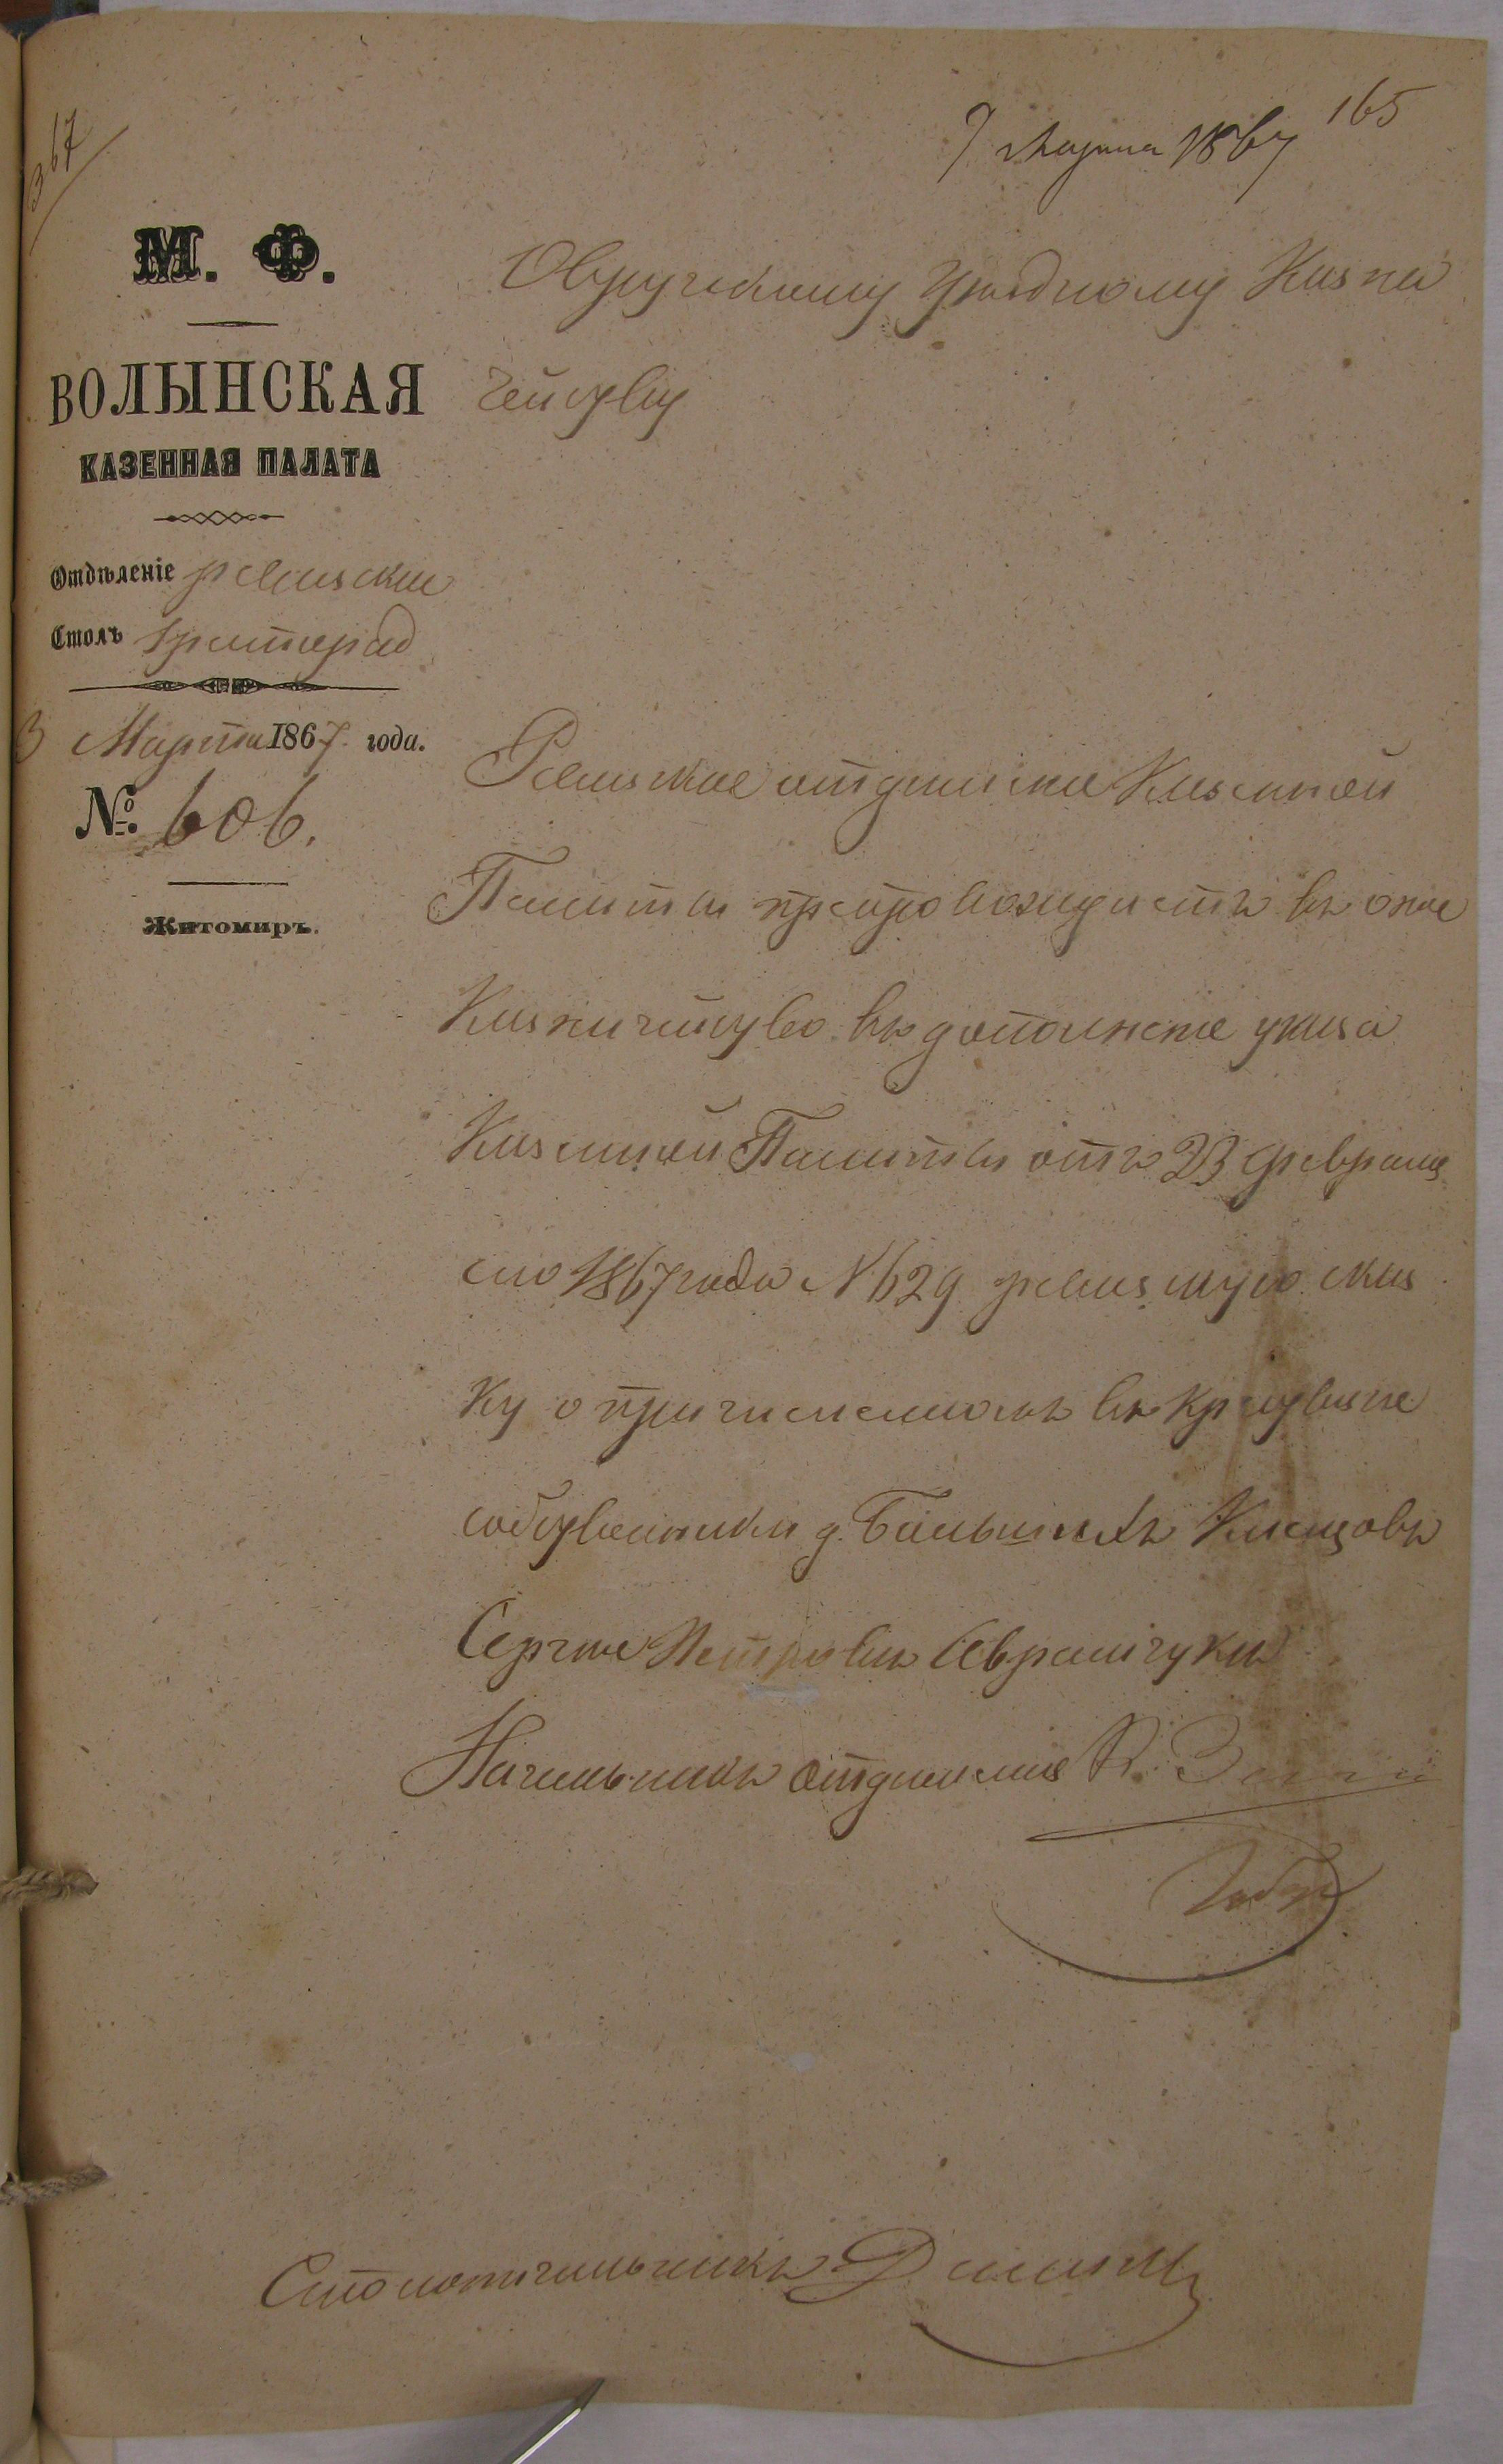 165
9 Марта 1867
367
М. Ф.
ВОЛЫНСКАЯ
КАЗЕННАЯ ПАЛАТА
Отдѣленіе ревизское
Столъ
3 Марта 1867 года.
№ 606.
Житомиръ.
Овручскому Уѣздному Казна
чейству
Ревизское отдѣленіе Казенной
Палаты препровождаетъ въ оное
Казначейство въ дополненіе указа
Казенной Палаты отъ 23 февраля
сего 1867 года № 629 ревизскую сказ
ку о причисленномъ въ крестьяне
собственники д. Большихъ Клещовъ
Сергѣе Петровѣ Аврамчукѣ
Начальникъ отдѣленія
Столоначальникъ